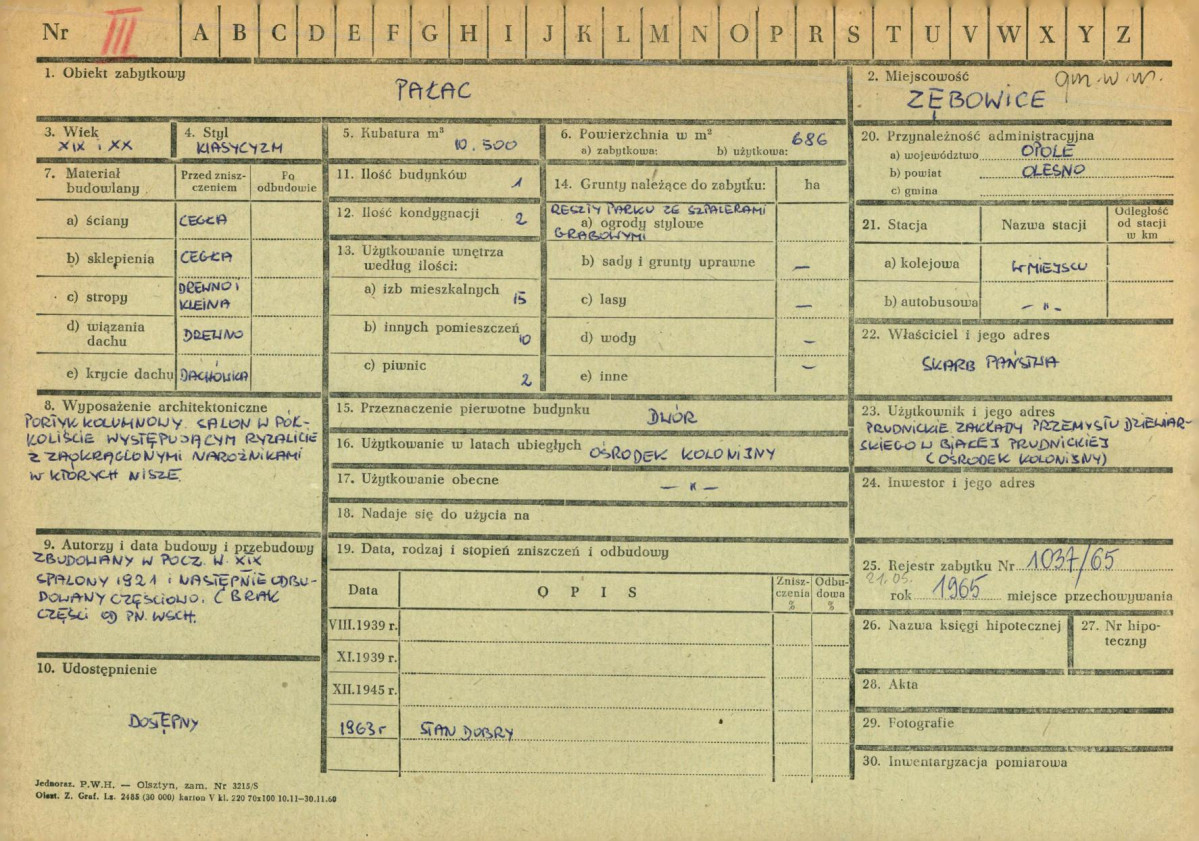 Nr III A B C D E F G H I J K L M N O P R S T U V W X Y Z
1. Obiekt zabytkowy
PAŁAC
2. Miejscowość gm. w. m.
ZĘBOWICE
3. Wiek
XIX i XX
4. Styl
KLASYCYZM
5. Kubatura m³
10.500
6. Powierzchnia w m²
a) zabytkowa: b) użytkowa: 686
7. Materiał budowlany
Przed zniszczeniem
Po odbudowie
a) ściany CEGŁA
b) sklepienia CEGŁA
c) stropy DREWNO I
KLEINA
d) wiązania
dachu DREWNO
e) krycie dachu DACHÓWKA
8. Wyposażenie architektoniczne
PORTYK KOLUMNOWY. SALON W PÓŁ-
KOLIŚCIE WYSTĘPUJĄCYM RYZALICIE
Z ZAOKRĄGLONYMI NAROŻNIKAMI
W KTÓRYCH NISZE.
9. Autorzy i data budowy i przebudowy
ZBUDOWANY W POCZ. W. XIX
SPALONY 1921 i NASTĘPNIE ODBU-
DOWANY CZĘŚCIOWO. (BRAK
CZĘŚCI OD PN. WSCH.
10. Udostępnienie
DOSTĘPNY
11. Ilość budynków 1
12. Ilość kondygnacji 2
13. Użytkowanie wnętrza
według ilości:
a) izb mieszkalnych 15
b) innych pomieszczeń 10
c) piwnic 2
14. Grunty należące do zabytku: ha
RESZTY PARKU ZE SZPALERAMI
a) ogrody stylowe
GRABOWYMI
b) sady i grunty uprawne —
c) lasy —
d) wody —
e) inne —
15. Przeznaczenie pierwotne budynku DWÓR
16. Użytkowanie w latach ubiegłych OŚRODEK KOLONIJNY
17. Użytkowanie obecne — " —
18. Nadaje się do użycia na
19. Data, rodzaj i stopień zniszczeń i odbudowy
Data OPIS Zniszczenia % Odbudowa %
VIII.1939 r.
XI.1939 r.
XII.1945 r.
1963 r STAN DOBRY
20. Przynależność administracyjna
a) województwo OPOLE
b) powiat OLESNO
c) gmina
21. Stacja Nazwa stacji Odległość od stacji w km
a) kolejowa W MIEJSCU
b) autobusowa — " —
22. Właściciel i jego adres
SKARB PAŃSTWA
23. Użytkownik i jego adres
PRUDNICKIE ZAKŁADY PRZEMYSŁU DZIEWIAR-
SKIEGO W BIAŁEJ PRUDNICKIEJ
(OŚRODEK KOLONIJNY)
24. Inwestor i jego adres
25. Rejestr zabytku Nr 1037/65
21.05.
rok 1965 miejsce przechowywania
26. Nazwa księgi hipotecznej
27. Nr hipo-
teczny
28. Akta
29. Fotografie
30. Inwentaryzacja pomiarowa
Jednoraz. P.W.H. — Olsztyn, zam. Nr 3215/S
Olszt. Z. Graf. Lz. 2485 (30 000) karton V kl. 220 70x100 10.11—30.11.60